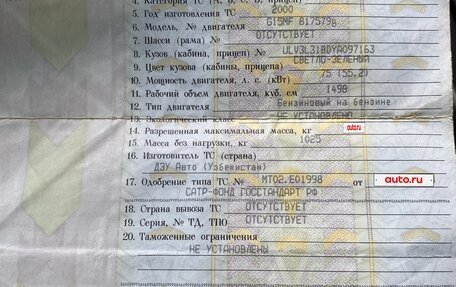 4. Категория ТС (А, В, С, D, прицеп)
5. Год изготовления ТС 2000
6. Модель, № двигателя G15MF 817579B
7. Шасси (рама) № ОТСУТСТВУЕТ
8. Кузов (кабина, прицеп) № ULV3L31BDYA097163
9. Цвет кузова (кабины, прицепа) СВЕТЛО-ЗЕЛЕНЫЙ
10. Мощность двигателя, л. с. (кВт) 75 (55,2)
11. Рабочий объем двигателя, куб. см 1498
12. Тип двигателя Бензиновый на бензине
13. Экологический класс НЕ УСТАНОВЛЕНО
14. Разрешенная максимальная масса, кг auto.ru
15. Масса без нагрузки, кг 1025
16. Изготовитель ТС (страна)
ДЭУ Авто (Узбекистан)
17. Одобрение типа ТС № МТ02.Е01998 от auto.ru
САТР-ФОНД ГОССТАНДАРТ РФ
18. Страна вывоза ТС ОТСУТСТВУЕТ
19. Серия, № ТД, ТПО ОТСУТСТВУЕТ
20. Таможенные ограничения
НЕ УСТАНОВЛЕНЫ